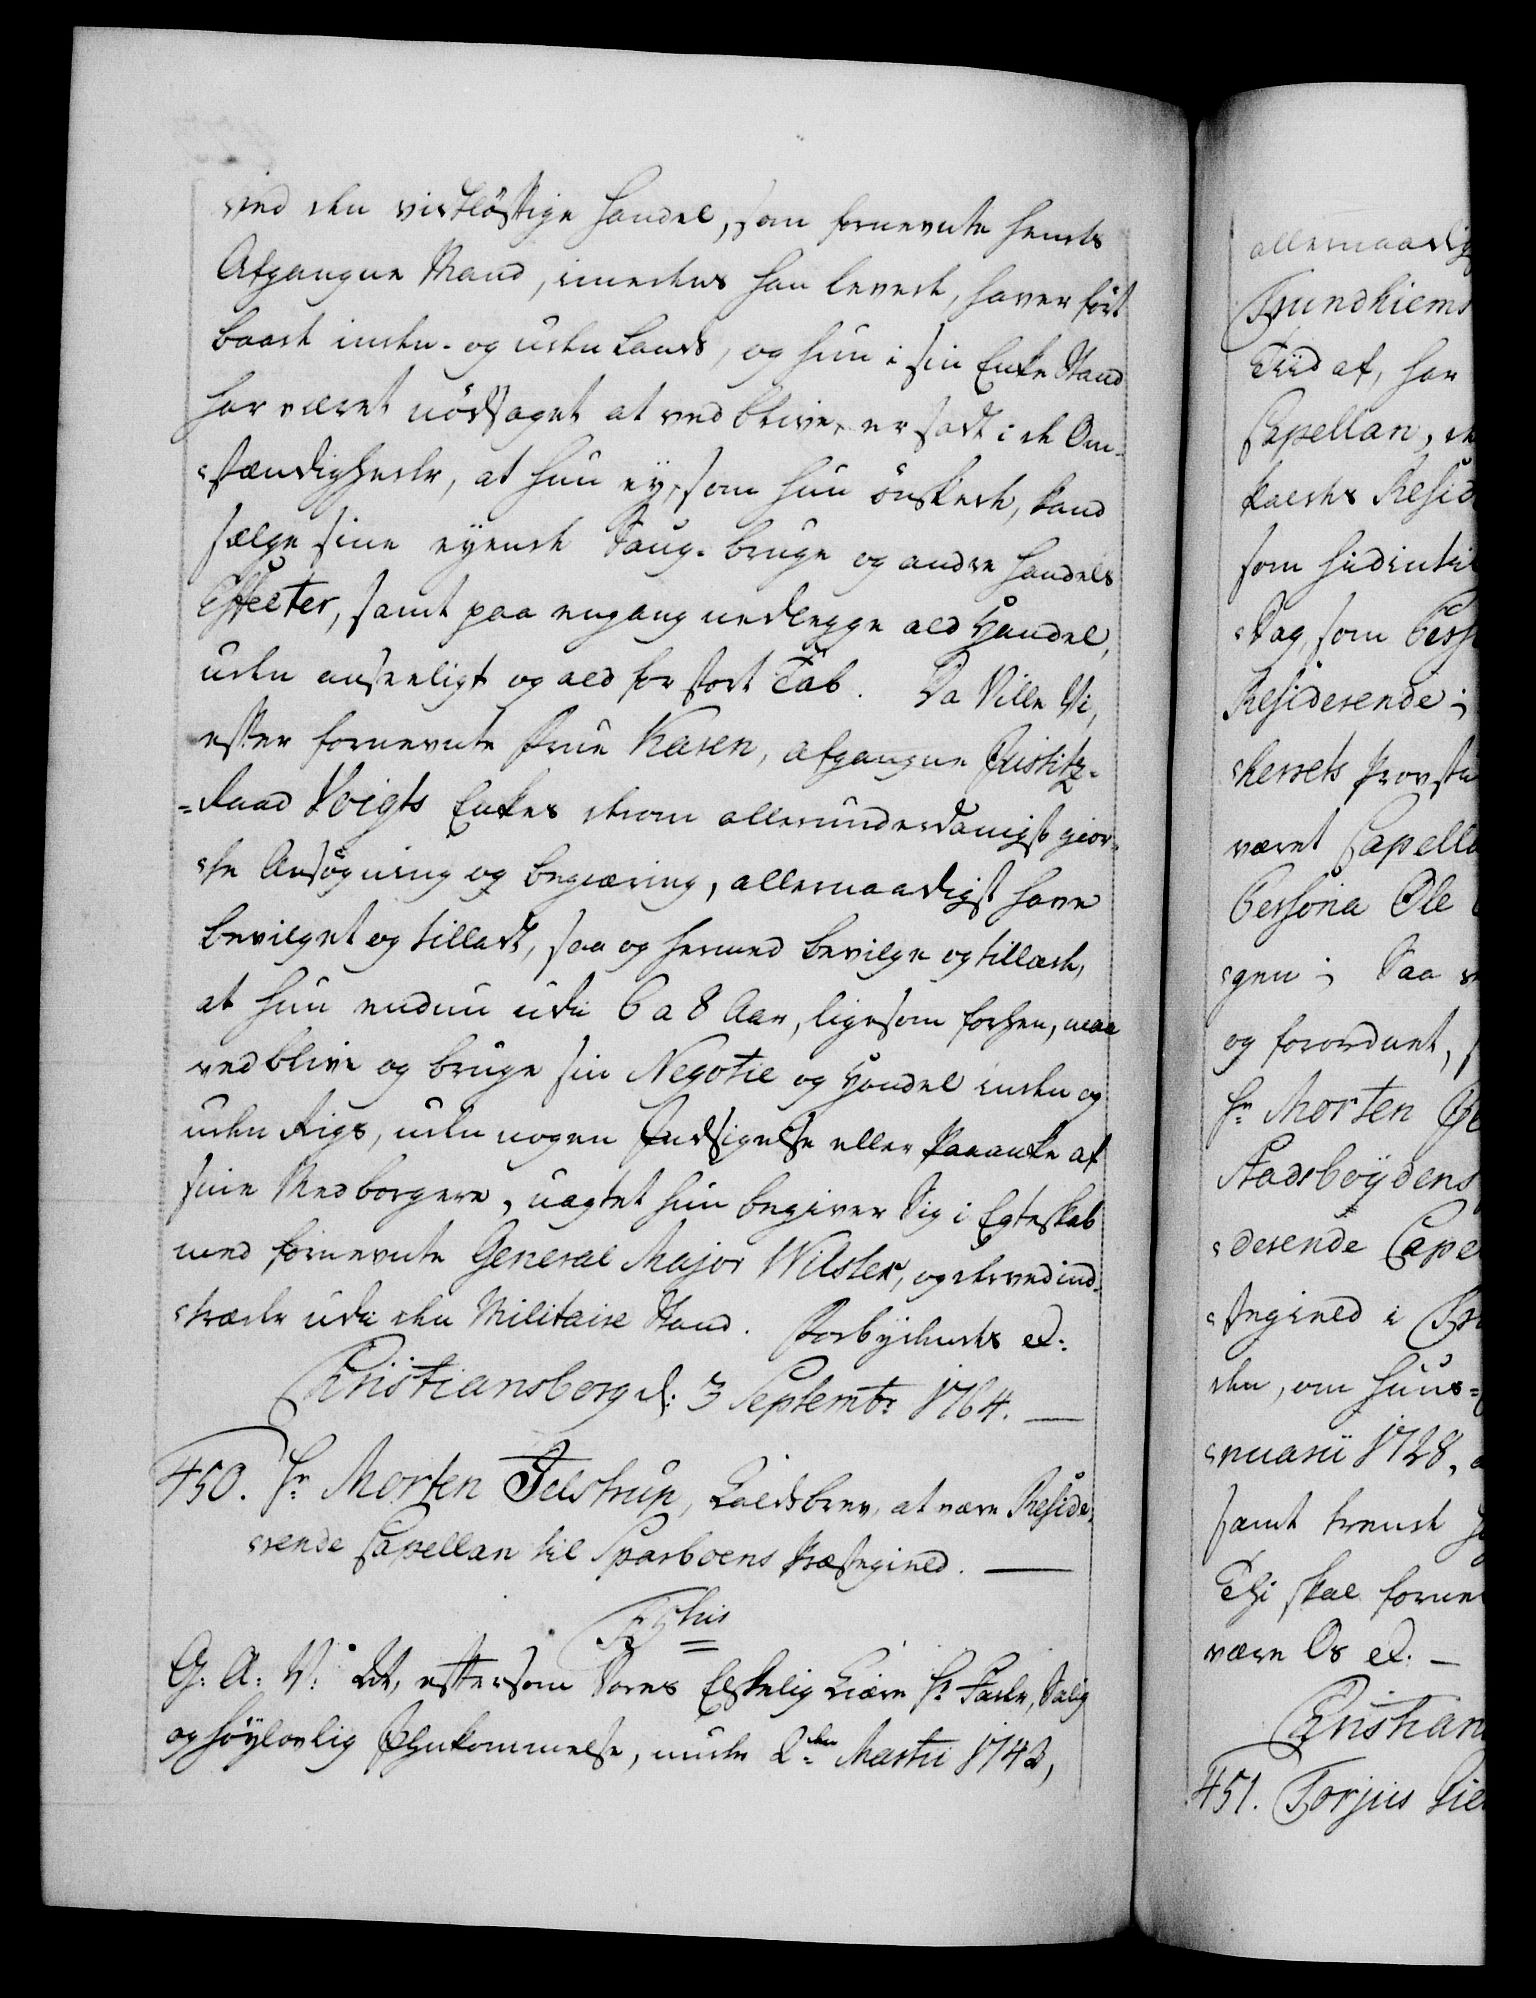 ved den vidtløftige Handel, som fornevnte hendes
Afgangne Mand, imedens han levede, haver ført
baade inden- og uden Lands, og hun i sin Enke Stand
har været nødsaget at vedblive, er sadt i de Om-
stændigheder, at hun ey, som hun ønskede, kand
sælge sine eyende Saug-bruge og andre Handels
Effecter, samt paa engang nedlegge ald Handel,
uden anseeligt og ald for stort Tab. Da Ville Vi,
efter fornevnte Frue Karen, afgangne Justitz-
-Raad Voigts Enkes derom allerunderdanigst gior-
de Ansøgning og begiæring, allernaadigst have
bevilget og tilladt, saa og hermed bevilge og tillade,
at hun endnu udi 6 a 8 Aar, ligesom forhen, maa
vedblive og bruge sin Negotie og Handel inden og
uden Rigs, uden nogen Indsigelse eller Paaanke af
sine Medborgere, uagtet hun begiver Sig i Egteskab
med fornevnte General Major Wilster, og derved ind-
træder udi den Militaire Stand. Forbydendes etc.
Christiansborg d: 3 Septembr 1764. —
450. Hr Morten Jelstrup, Kaldsbrev, at være Reside-
rende Capellan til Sparboens Præstegield. —
F 5this
G. A. V: At, eftersom Vores Elskelig Kiære Hr Fader, Salig
og høylovlig Ihukommelse, under 2den Martii 1743,
allernaadigst
Trundhiems
Tiid af, har
Capellan, de
kaldes Resid
som hidintil
Dag, som Perso
Residerende;
derrets Provste
været Capella
Persona Ole
gen; Saa v
og forordnet, s
Hr Morten Je
Stadsboydens
derende Cape
stegield i Tr
den, om Huus-
nuarii 1728, o
samt trende
Thi skal forne
være Os etc. —
Christian
451. Torjus Gie